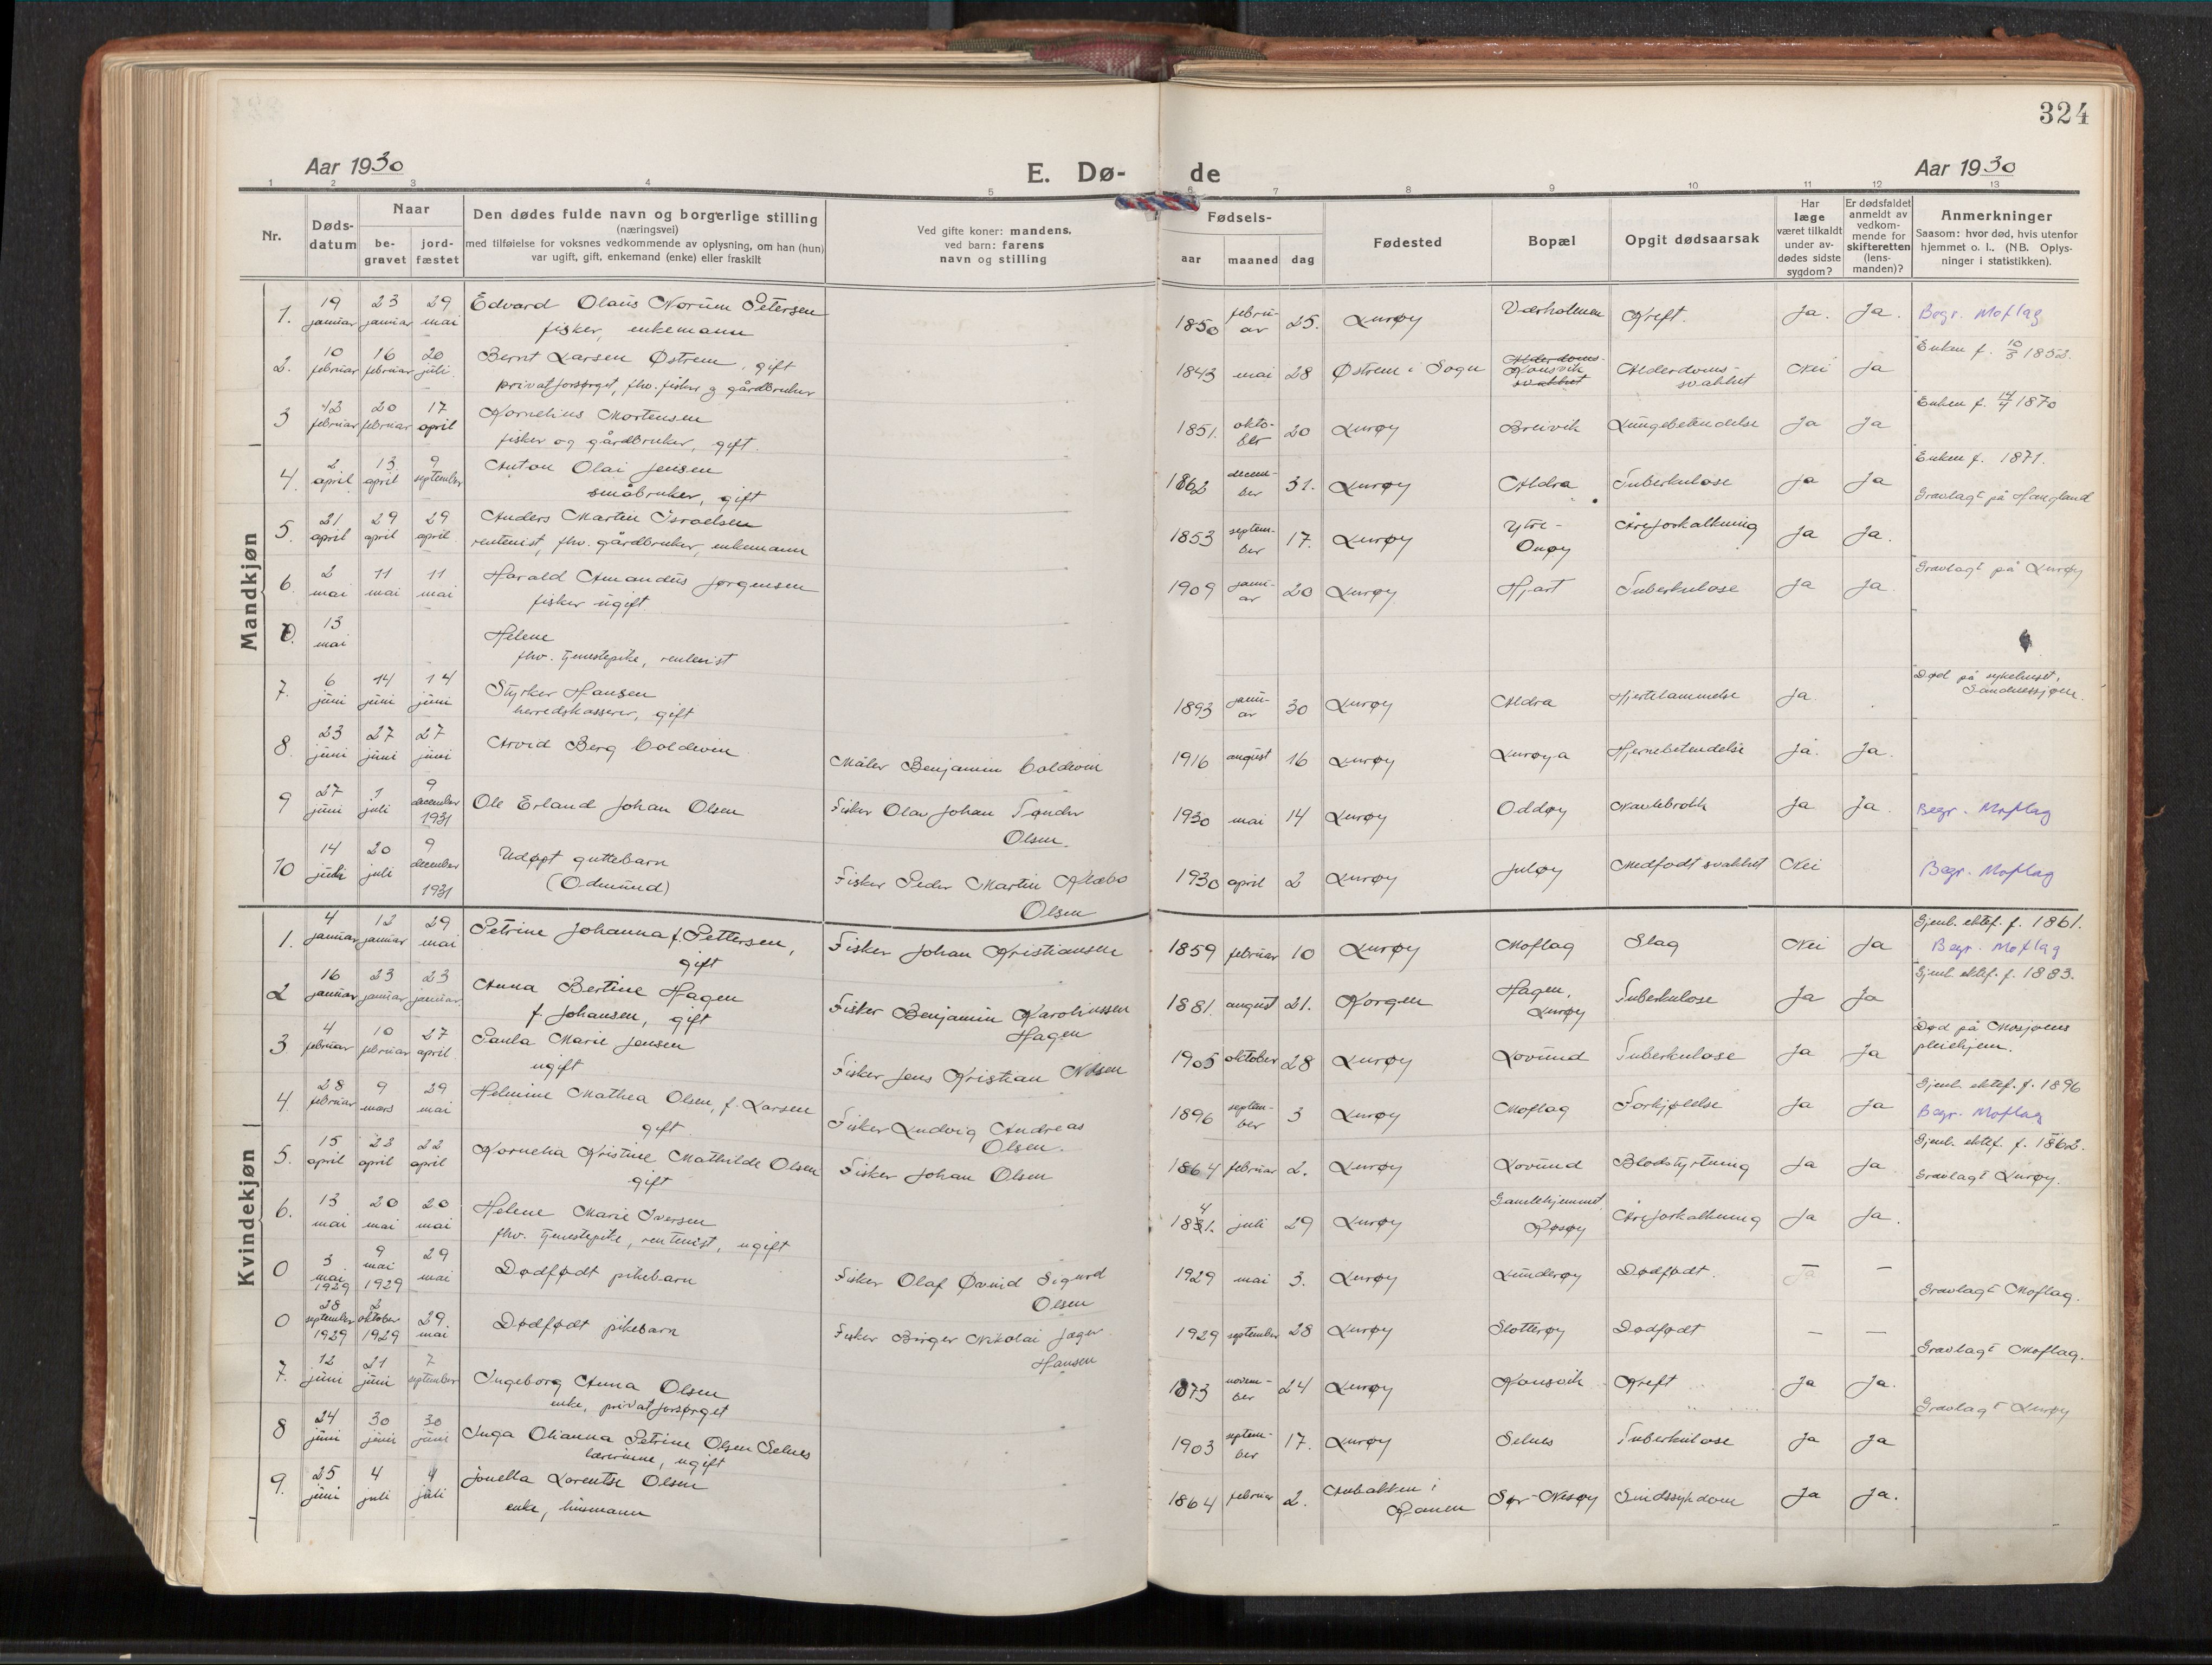 324
Aar 1930
E. Dø-
de
Aar 1930
1 2 3 4 5 6 7 8 9 10 11 12 13
Nr.
Døds-
datum
Naar
be-
gravet
jord-
fæstet
Den dødes fulde navn og borgerlige stilling
(næringsvei)
med tilføielse for voksnes vedkommende av oplysning, om han (hun)
var ugift, gift, enkemand (enke) eller fraskilt
Ved gifte koner: mandens,
ved barn: farens
navn og stilling
Fødsels-
aar maaned dag
Fødested
Bopæl
Opgit dødsaarsak
Har
læge
været tilkaldt
under av-
dødes sidste
sygdom?
Er dødsfaldet
anmeldt av
vedkom-
mende for
skifteretten
(lens-
manden)?
Anmerkninger
Saasom: hvor død, hvis utenfor
hjemmet o. l.. (NB. Oplys-
ninger i statistikken).
Mandkjøn
1. 19 januar 23 januar 29 mai Edvard Olaus Norum Petersen
fisker, enkemann
1850 februar 25. Lurøy Værholmen Kreft. Ja. Ja. Begr. Moflag
2. 10 februar 16 februar 20 juli Bernt Larsen Østrem, gift
privatforsørget, fhv. fisker og gårdbruker
1843 mai 28 Østrem i Sogn Alderdoms- Konsvik svakhet Alderdoms-svakhet Nei Ja Enken f. 10/3 1852.
3 12 februar 20 februar 17 april Kornelius Mortensen
fisker og gårdbruker, gift.
1851. oktober 20 Lurøy Breivik Lungebetendelse Ja Ja Enken f. 14/4 1870
4. 2 april 13 april 9 september Anton Olai Jensen
småbruker, gift
1862 december 31. Lurøy Aldra Tuberkulose Ja Ja Enken f. 1871.
Gravlagt på Haugland
5. 21 april 29 april 29 april Anders Martin Israelsen
rentenist, fhv. gårdbruker, enkemann
1853 september 17. Lurøy Ytre-Onøy Åreforkalkning Ja Ja.
6. 2 mai 11 mai 11 mai Harald Amandus Jørgensen
fisker ugift
1909 januar 20 Lurøy Hjart Tuberkulose Ja Ja Gravlagt på Lurøy
0. 13 mai Helene
fhv. tjenestepike, rentenist
7. 6 juni 14 juni 14 juni Styrker Hansen
herredskasserer, gift
1893 januar 30 Lurøy Aldra Hjertelammelse Ja. Død på sykehuset,
Sandnessjøen.
8. 23 juni 27 juni 27 juni Arvid Berg Coldevin
Maler Benjamin Coldevin
1916 august 16 Lurøy Lurøya Hjernebetendelse Ja. Ja.
9 27 juni 1 juli 9 december 1931 Ole Erland Johan Olsen
Fisker Olav Johan Tønder
Olsen.
1930 mai 14 Lurøy Oddøy Navlebrokk Ja Ja. Begr. Moflag
10 14 juli 20 juli 9 december 1931 Udøpt guttebarn
(Odmund)
Fisker Peder Martin Klæbo
Olsen
1930 april 2 Lurøy Juløy Medfødt svakhet Nei Begr. Moflag
Kvindekjøn
1. 4 januar 12 januar 29 mai Petrine Johanna f. Pettersen,
gift
Fisker Johan Kristiansen
1859 februar 10 Lurøy Moflag Slag Nei Ja Gjenl. ektef. f. 1861.
Begr. Moflag
2 16 januar 23 januar 23 januar Anna Bertine Hagen
f. Johansen, gift
Fisker Benjamin Karolinssen
Hagen
1881. august 21. Korgen Hagen, Lurøy Tuberkulose Ja Ja Gjenl. ektef. f. 1883.
3 4 februar 10 februar 27 april Paula Marie Jensen
ugift
Fisker Jens Kristian Nilsen
1905 oktober 28 Lurøy Lovund Tuberkulose Ja Ja Død på Mosjøens
pleiehjem.
4. 28 februar 9 mars 29 mai Helmine Mathea Olsen, f. Larsen
gift.
Fisker Ludvig Andreas
Olsen.
1896 september 3 Lurøy Moflag Forkjølelse Ja Ja Gjenl. ektef. f. 1896
Begr. Moflag
5. 15 april 22 april 22 april Kornelia Kristine Mathilde Olsen
gift
Fisker Johan Olsen
1864 februar 2. Lurøy Lovund Blodstyrtning Ja Ja Gjenl. ektef. f. 1862.
Gravlagt Lurøy.
6. 13 mai 20 mai 20 mai Helene Marie Iversen
fhv. tjenestepike, rentenist, ugift
4
1831. juli 29 Lurøy Gamlehjemmet, Røsøy Åreforkalkning Ja Ja.
0 3 mai 1929 9 mai 1929 29 mai Dødfødt pikebarn
Fisker Olaf Øvind Sigurd
Olsen
1929 mai 3. Lurøy Lunderøy Dødfødt. — Gravlagt Moflag.
0 28 september 1929 2 oktober 1929 29. mai Dødfødt pikebarn
Fisker Birger Nikolai Jæger
Hansen
1929 september 28 Lurøy Slotterøy Dødfødt — — Gravlagt Moflag.
7. 12 juni 21 juni 7 september Ingeborg Anna Olsen
enke, privatforsørget
1873 november 24 Lurøy Konsvik Kreft Ja Ja. Gravlagt Lurøy
8 24 juni 30 juni 30 juni Inga Olianna Petrine Olsen Selnes
lærerinne, ugift
1903 september 17. Lurøy Selnes Tuberkulose Ja Ja
9. 25 juni 4 juli 4 juli Jonella Lorentse Olsen
enke, husmann
1864 februar 2. Aubakken i Ranen Sør-Nesøy Sindssykdom Ja Ja.